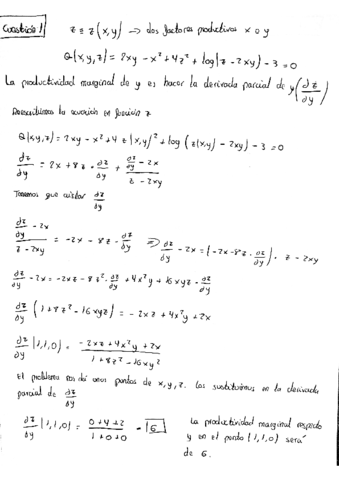 Cuestión 1
z ≡ z(x,y) → dos factores productivos x o y
Q(x,y,z) = 2xy - x² + 4z² + log(z - 2xy) - 3 = 0
La productividad marginal de y es hacer la derivada parcial de y (∂z/∂y)
Reescribimos la ecuación en función z
Q(x,y,z) = 2xy - x² + 4 z(x,y)² + log(z(x,y) - 2xy) - 3 = 0
∂z/∂y = 2x + 8z · ∂z/∂y + (∂z/∂y - 2x)/(z - 2xy)
Tenemos que aislar ∂z/∂y
(∂z/∂y - 2x)/(z - 2xy) = -2x - 8z · ∂z/∂y ⇒ ∂z/∂y - 2x = (-2x - 8z · ∂z/∂y) · z - 2xy
∂z/∂y - 2x = -2xz - 8z² · ∂z/∂y + 4x²y + 16xyz · ∂z/∂y
∂z/∂y (1 + 8z² - 16xyz) = -2xz + 4x²y + 2x
∂z/∂y (1,1,0) = (-2xz + 4x²y + 2x)/(1 + 8z² - 16xyz)
El problema nos da unos puntos de x, y, z. Los sustituimos en la derivada
parcial de ∂z/∂y
∂z/∂y (1,1,0) = (0+4+2)/(1+0+0) = 6 La productividad marginal respecto
y en el punto (1,1,0) será
de 6.